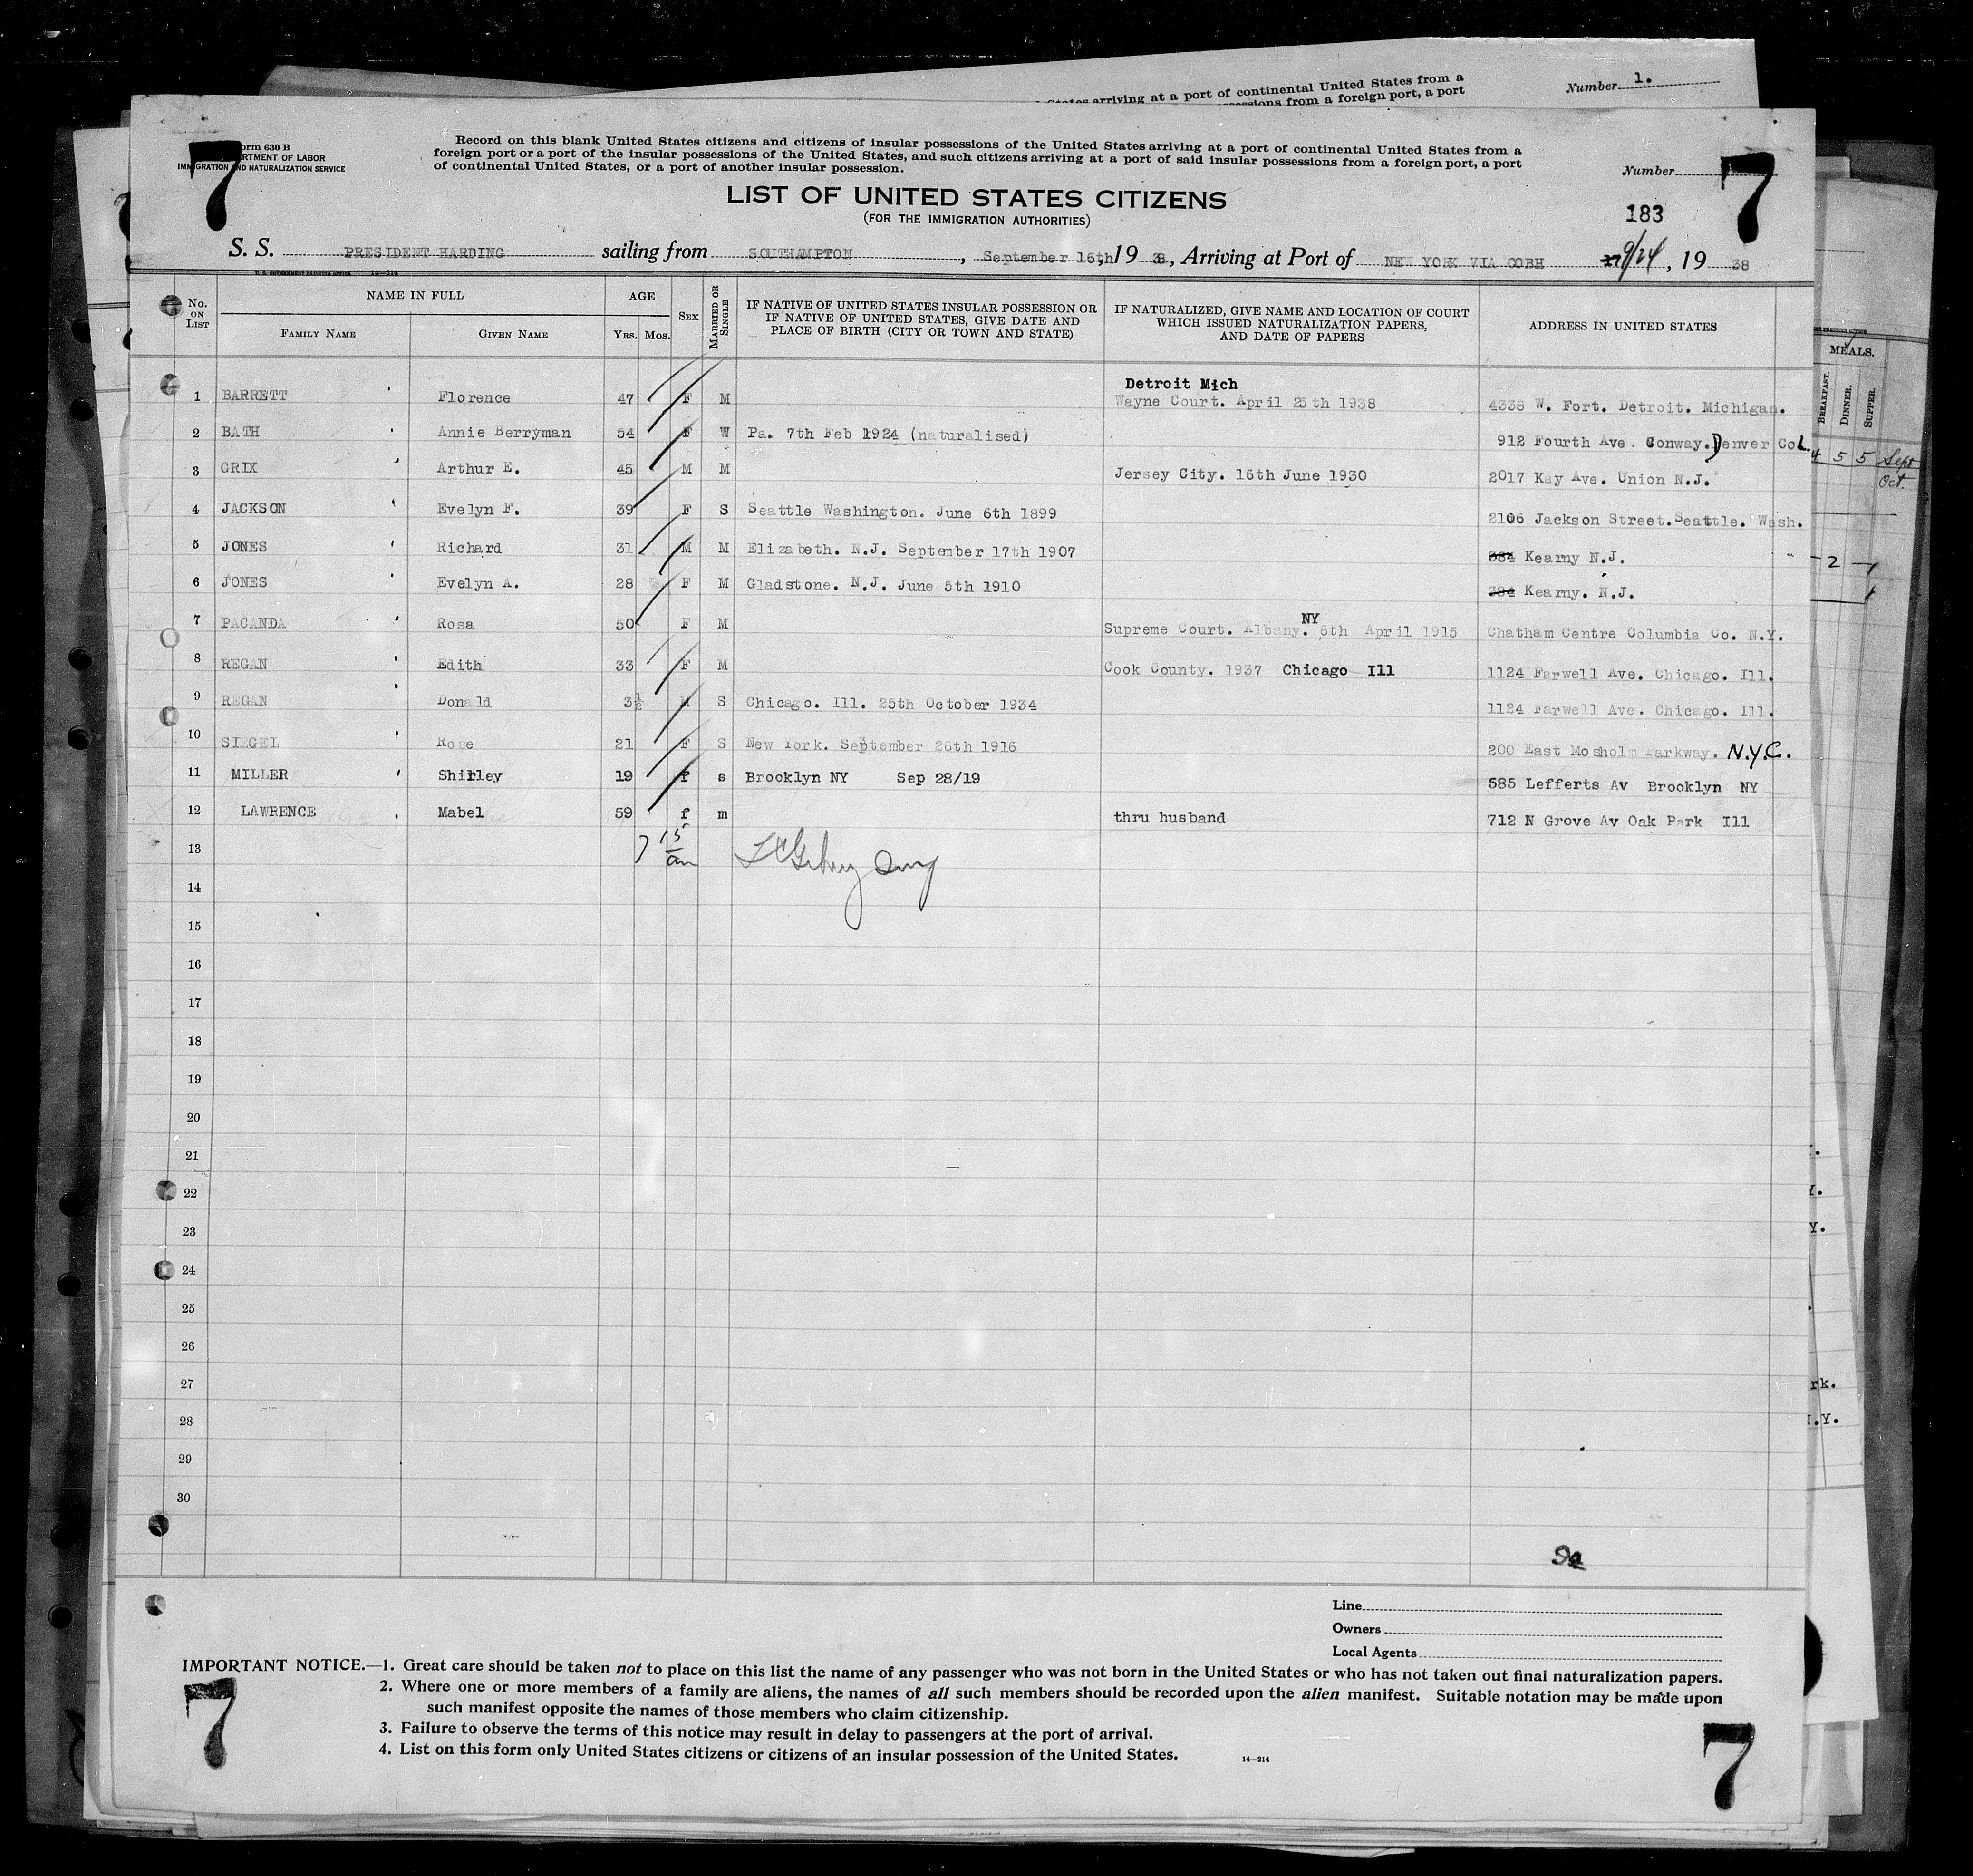 States arriving at a port of continental United States from a
Number 1.
from a foreign port, a port
7
Form 630 B
DEPARTMENT OF LABOR
IMMIGRATION AND NATURALIZATION SERVICE
Record on this blank United States citizens and citizens of insular possessions of the United States arriving at a port of continental United States from a
foreign port or a port of the insular possessions of the United States, and such citizens arriving at a port of said insular possessions from a foreign port, a port
of continental United States, or a port of another insular possession.
Number
7
LIST OF UNITED STATES CITIZENS
(FOR THE IMMIGRATION AUTHORITIES)
183
S. S. PRESIDENT HARDING sailing from SOUTHAMPTON, September 16th, 19 38, Arriving at Port of NEW YORK VIA COBH 9/24, 19 38
No. ON LIST
NAME IN FULL
FAMILY NAME
GIVEN NAME
AGE
YRS. MOS.
SEX
MARRIED OR SINGLE
IF NATIVE OF UNITED STATES INSULAR POSSESSION OR
IF NATIVE OF UNITED STATES, GIVE DATE AND
PLACE OF BIRTH (CITY OR TOWN AND STATE)
IF NATURALIZED, GIVE NAME AND LOCATION OF COURT
WHICH ISSUED NATURALIZATION PAPERS,
AND DATE OF PAPERS
ADDRESS IN UNITED STATES
MEALS.
BREAKFAST.
DINNER.
SUPPER.
Detroit Mich
1 BARRETT Florence 47 F M Wayne Court. April 25th 1938 4338 W. Fort. Detroit. Michigan.
2 BATH Annie Berryman 54 F W Pa. 7th Feb 1924 (naturalised) 912 Fourth Ave. Conway. Denver Col.
4 5 5 Sept
Oct.
3 GRIX Arthur E. 45 M M Jersey City. 16th June 1930 2017 Kay Ave. Union N.J.
4 JACKSON Evelyn F. 39 F S Seattle Washington. June 6th 1899 2106 Jackson Street. Seattle. Wash.
5 JONES Richard 31 M M Elizabeth. N.J. September 17th 1907 384 Kearny N.J.
2
6 JONES Evelyn A. 28 F M Gladstone. N.J. June 5th 1910 384 Kearny. N.J.
NY
7 PACANDA Rosa 50 F M Supreme Court. Albany. 6th April 1915 Chatham Centre Columbia Co. N.Y.
8 REGAN Edith 33 F M Cook County. 1937 Chicago Ill 1124 Farwell Ave. Chicago. Ill.
9 REGAN Donald 3½ M S Chicago. Ill. 25th October 1934 1124 Farwell Ave. Chicago. Ill.
10 SIEGEL Rose 21 F S New York. September 26th 1916 200 East Mosholm Parkway. N.Y.C.
11 MILLER Shirley 19 f s Brooklyn NY Sep 28/19 585 Lefferts Av Brooklyn NY
12 LAWRENCE Mabel 59 f m thru husband 712 N Grove Av Oak Park Ill
13
7 15 am
14
15
16
17
18
19
20
21
22
23
24
25
26
27
rk.
28
N.Y.
29
30
Line
Owners
Local Agents
IMPORTANT NOTICE.—1. Great care should be taken not to place on this list the name of any passenger who was not born in the United States or who has not taken out final naturalization papers.
2. Where one or more members of a family are aliens, the names of all such members should be recorded upon the alien manifest. Suitable notation may be made upon
such manifest opposite the names of those members who claim citizenship.
3. Failure to observe the terms of this notice may result in delay to passengers at the port of arrival.
4. List on this form only United States citizens or citizens of an insular possession of the United States.
14—214
7
7